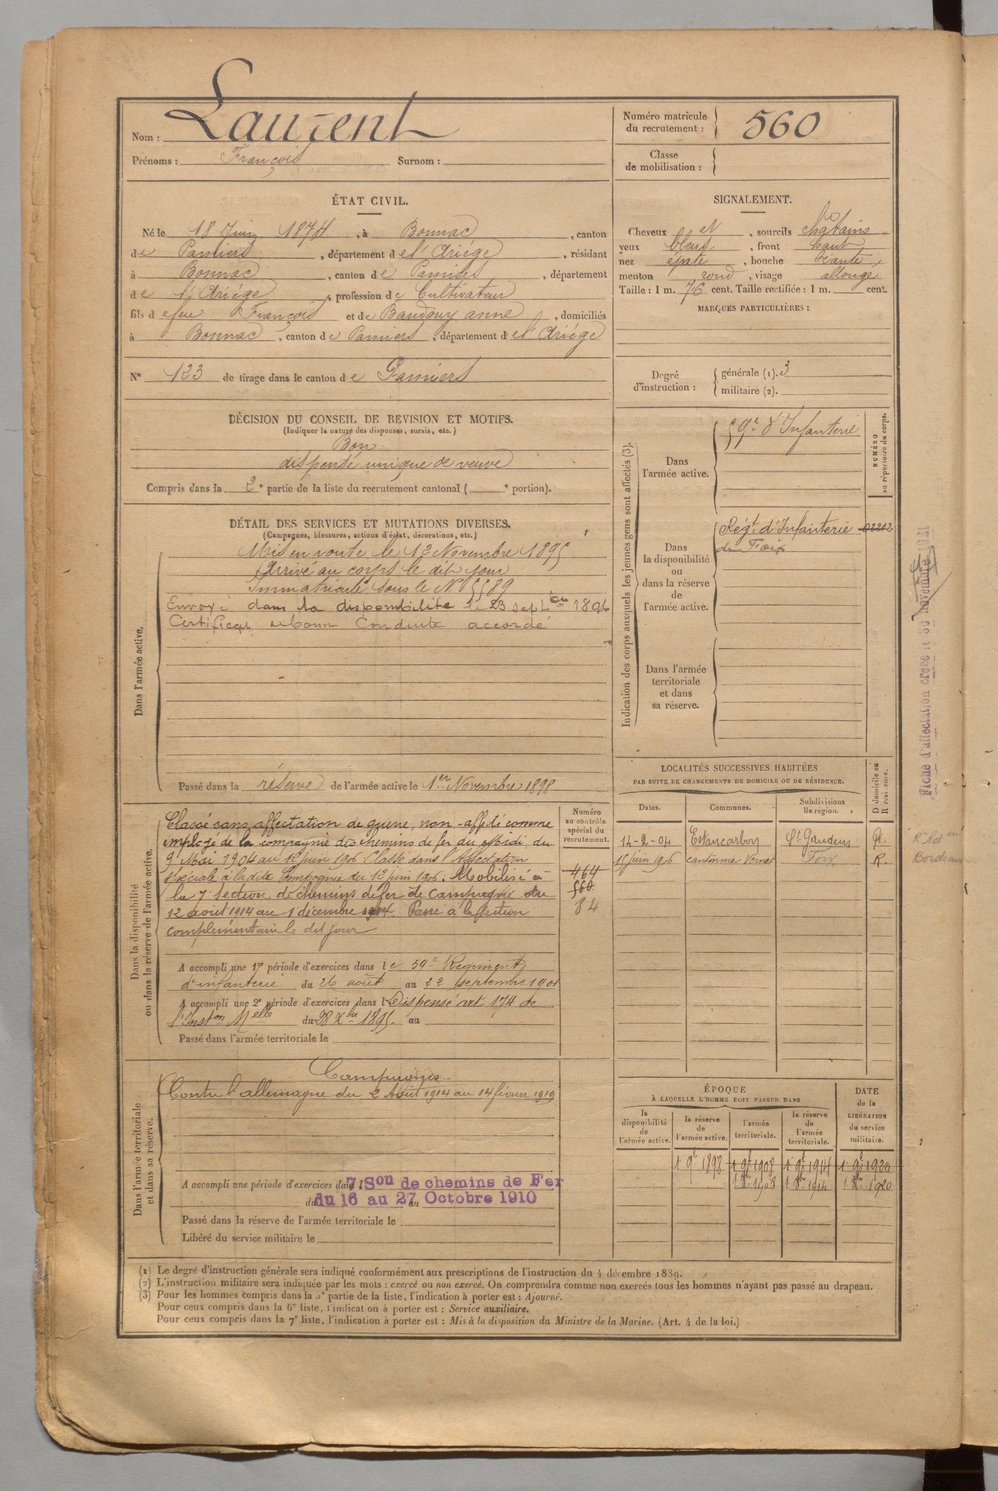 Nom : Laurent
Prénoms : François Surnom :
Numéro matricule du recrutement : 560
Classe de mobilisation :
ÉTAT CIVIL.
Né le 18 Juin 1874, à Bonnac, canton
de Pamiers, département de l'Ariège, résidant
à Bonnac, canton de Pamiers, département
de l'Ariège, profession de Cultivateur
fils de feu François et de Baudguy anne, domiciliés
à Bonnac, canton de Pamiers, département de l'Ariège
N° 123 de tirage dans le canton de Pamiers
SIGNALEMENT.
Cheveux et, sourcils châtains
yeux bleus, front haut
nez épaté, bouche
menton rond, visage allongé
Taille : 1 m. 76 cent. Taille rectifiée : 1 m. cent.
MARQUES PARTICULIÈRES :
Degré d'instruction : générale (1). 3
militaire (2).
DÉCISION DU CONSEIL DE REVISION ET MOTIFS.
(Indiquer la nature des dispenses, sursis, etc.)
Bon
dispensé unique de veuve
Compris dans la 2e partie de la liste du recrutement cantonal ( e portion).
DÉTAIL DES SERVICES ET MUTATIONS DIVERSES.
(Campagnes, blessures, actions d'éclat, décorations, etc.)
Dans l'armée active.
Mis en route le 13 Novembre 1895
Arrivé au corps le dit jour
Immatriculé sous le N° 5589
Envoyé dans la disponibilité le 23 septbre 1896
Certificat de bonne Conduite accordé
Passé dans la réserve de l'armée active le 1er Novembre 1898
Indication des corps auxquels les jeunes gens sont affectés (3).
NUMÉRO au répertoire du corps.
Dans l'armée active.
59e d'Infanterie
Dans la disponibilité ou dans la réserve de l'armée active.
Régt d'Infanterie 02212
de Foix
Dans l'armée territoriale et dans sa réserve.
Fiche d'affectation créée le 30 novembre 1921
Dans la disponibilité ou dans la réserve de l'armée active.
Numéro au contrôle spécial du recrutement.
Classé sans affectation de guerre, non-affecté comme
employé de la compagnie des chemins de fer du Midi, du
9 Mai 1904 au 12 juin 1906. Classé dans l'affectation
spéciale à ladite Compagnie du 12 juin 1906. Mobilisé à
la 7 section de chemins de fer de Campagne du
12 aout 1914 au 1 décembre 1914. Passé à la section
complémentaire le dit jour
464
560
84
A accompli une 1re période d'exercices dans le 59e Régiment
d'infanterie du 26 août au 22 septembre 1901
A accompli une 2e période d'exercices dans l Dispensé art. 174 de
l'Inston Melle du 28 Xbre 1895. au
Passé dans l'armée territoriale le
LOCALITÉS SUCCESSIVES HABITÉES
PAR SUITE DE CHANGEMENTS DE DOMICILE OU DE RÉSIDENCE.
Dates. Communes. Subdivisions de région. D domicile ou R résidence.
14-2-04 Estancarbon St Gaudens R.
15 juin 1906 cantonnier Vernet Foix R.
Bordeaux
Dans l'armée territoriale et dans sa réserve.
Campagnes
Contre l'allemagne du 2 Août 1914 au 14 février 1919
A accompli une période d'exercices dans l 7 Son de chemins de Fer
du 16 au 27 Octobre 1910
Passé dans la réserve de l'armée territoriale le
Libéré du service militaire le
ÉPOQUE
À LAQUELLE L'HOMME DOIT PASSER DANS
DATE de la LIBÉRATION du service militaire.
la disponibilité de l'armée active. la réserve de l'armée active. l'armée territoriale. la réserve de l'armée territoriale.
1 9bre 1898 1 9bre 1908 1 9bre 1914 1 9bre 1920
(1) Le degré d'instruction générale sera indiqué conformément aux prescriptions de l'instruction du 4 décembre 1889.
(2) L'instruction militaire sera indiquée par les mots : exercé ou non exercé. On comprendra comme non exercés tous les hommes n'ayant pas passé au drapeau.
(3) Pour les hommes compris dans la 5e partie de la liste, l'indication à porter est : Ajourné.
Pour ceux compris dans la 6e liste, l'indication à porter est : Service auxiliaire.
Pour ceux compris dans la 7e liste, l'indication à porter est : Mis à la disposition du Ministre de la Marine. (Art. 4 de la loi.)